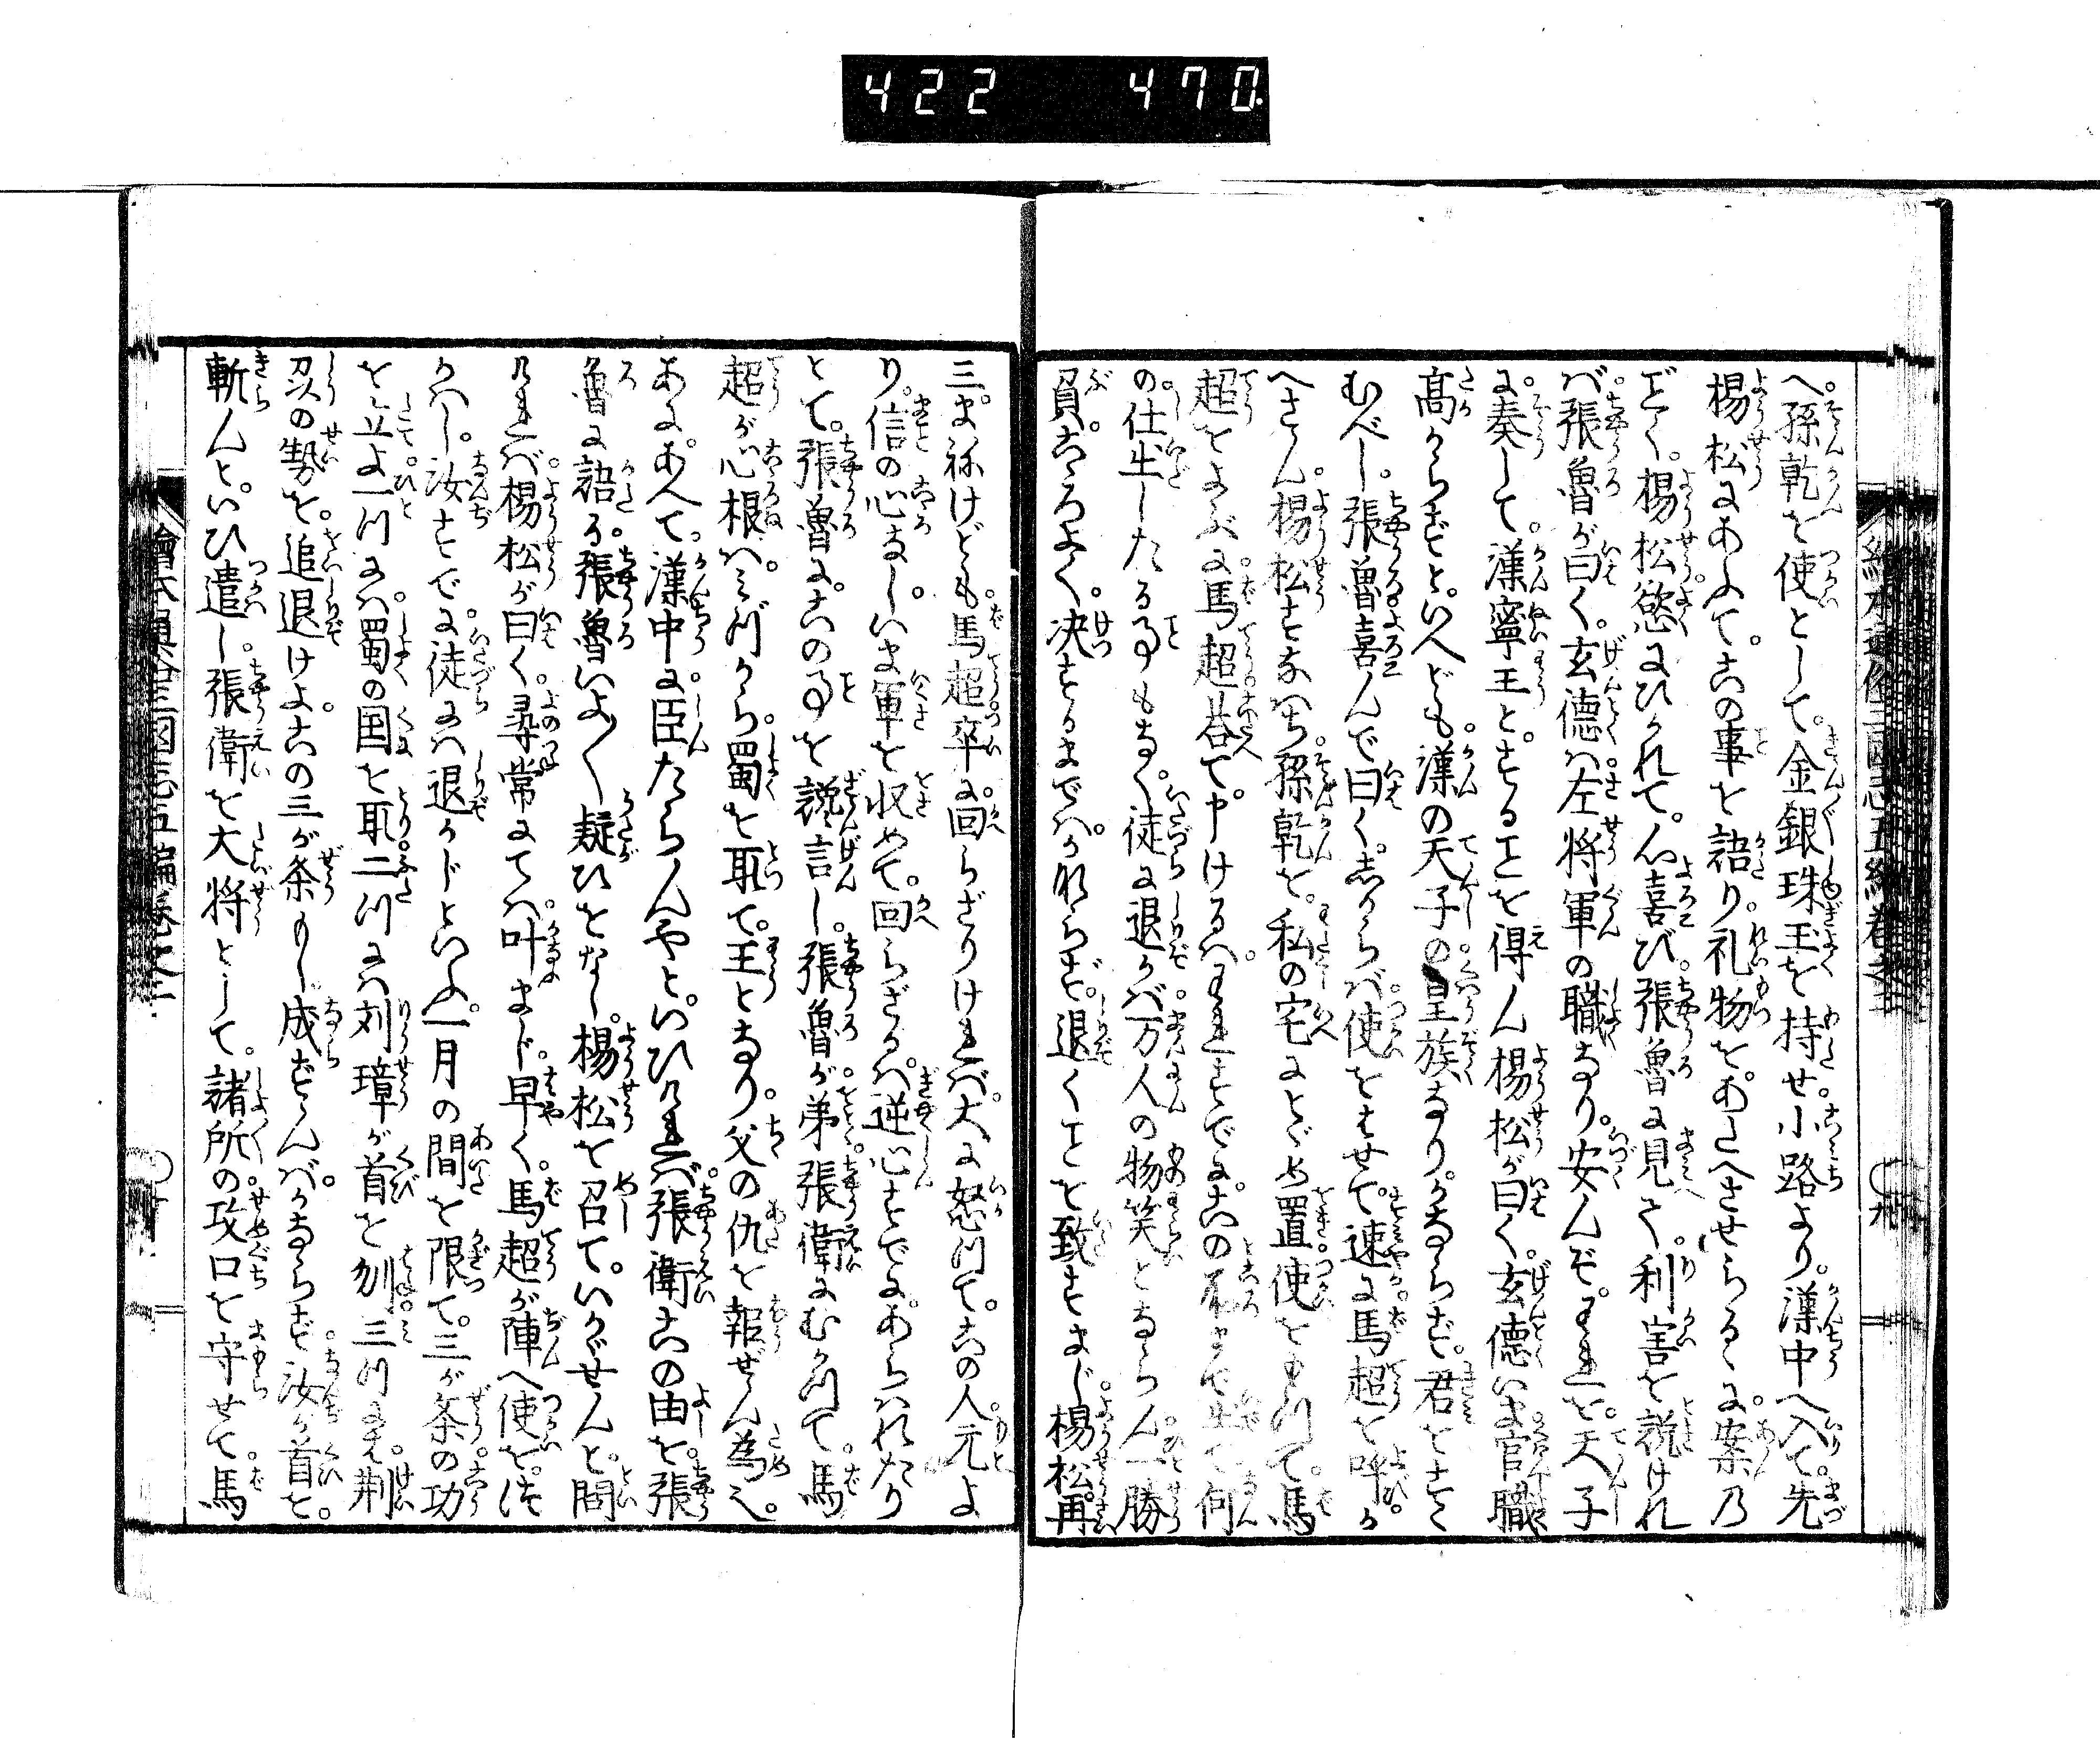 422 470
へ孫乾を使として金銀珠玉を持せ小路より漢中へ入て先
楊松にあふてこの事を語り礼物をあたへさせらるゝに案乃
ごとく楊松慾にひかれて心喜び張魯に見えて利害を説けれ
ば張魯が曰く玄德は左将軍の職なり安んぞわれを天子
に奏して漢寧王とすることを得ん楊松が曰く玄德いま官職
高からずといへども漢の天子の皇族なりかならず君をすゝ
むべし張魯喜んで曰くしからば使をはせて速に馬超を呼か
へさん楊松すなはち孫乾を私の宅にとゞめ置使をもつて馬
超をよぶに馬超荅て申けるはわれすでにこの所まで出て何
の仕出したる事もなく徒に退かば万人の物笑とならん一勝
負こゝろよく决するまではかならず退くことを致すまじ楊松再
三まねけども馬超卒に回らざりければ大に怒つてこの人元よ
り信の心なしいま軍を収めて回らざるは逆心すでにあらはれたり
とて張魯にこの事を讒言し張魯が弟張衛にむかつて馬
超が心根はみづから蜀を取て王となり父の仇を報ぜん為也
あにあへて漢中に臣たらんやといひければ張衛この由を張
魯に語る張魯いよ〱疑ひをなし楊松を召ていかゞせんと問
ければ楊松が曰く尋常にては叶まじ早く馬超が陣へ使をつ
かはし汝すでに徒には退かじといふ一月の間を限て三が条の功
を立よ一つには蜀の国を取二つには刘璋が首を刎三つには荆
州の勢を追退けよこの三が条もし成ずんばかならず汝が首を
斬んといひ遣し張衛を大将として諸所の攻口を守せて馬